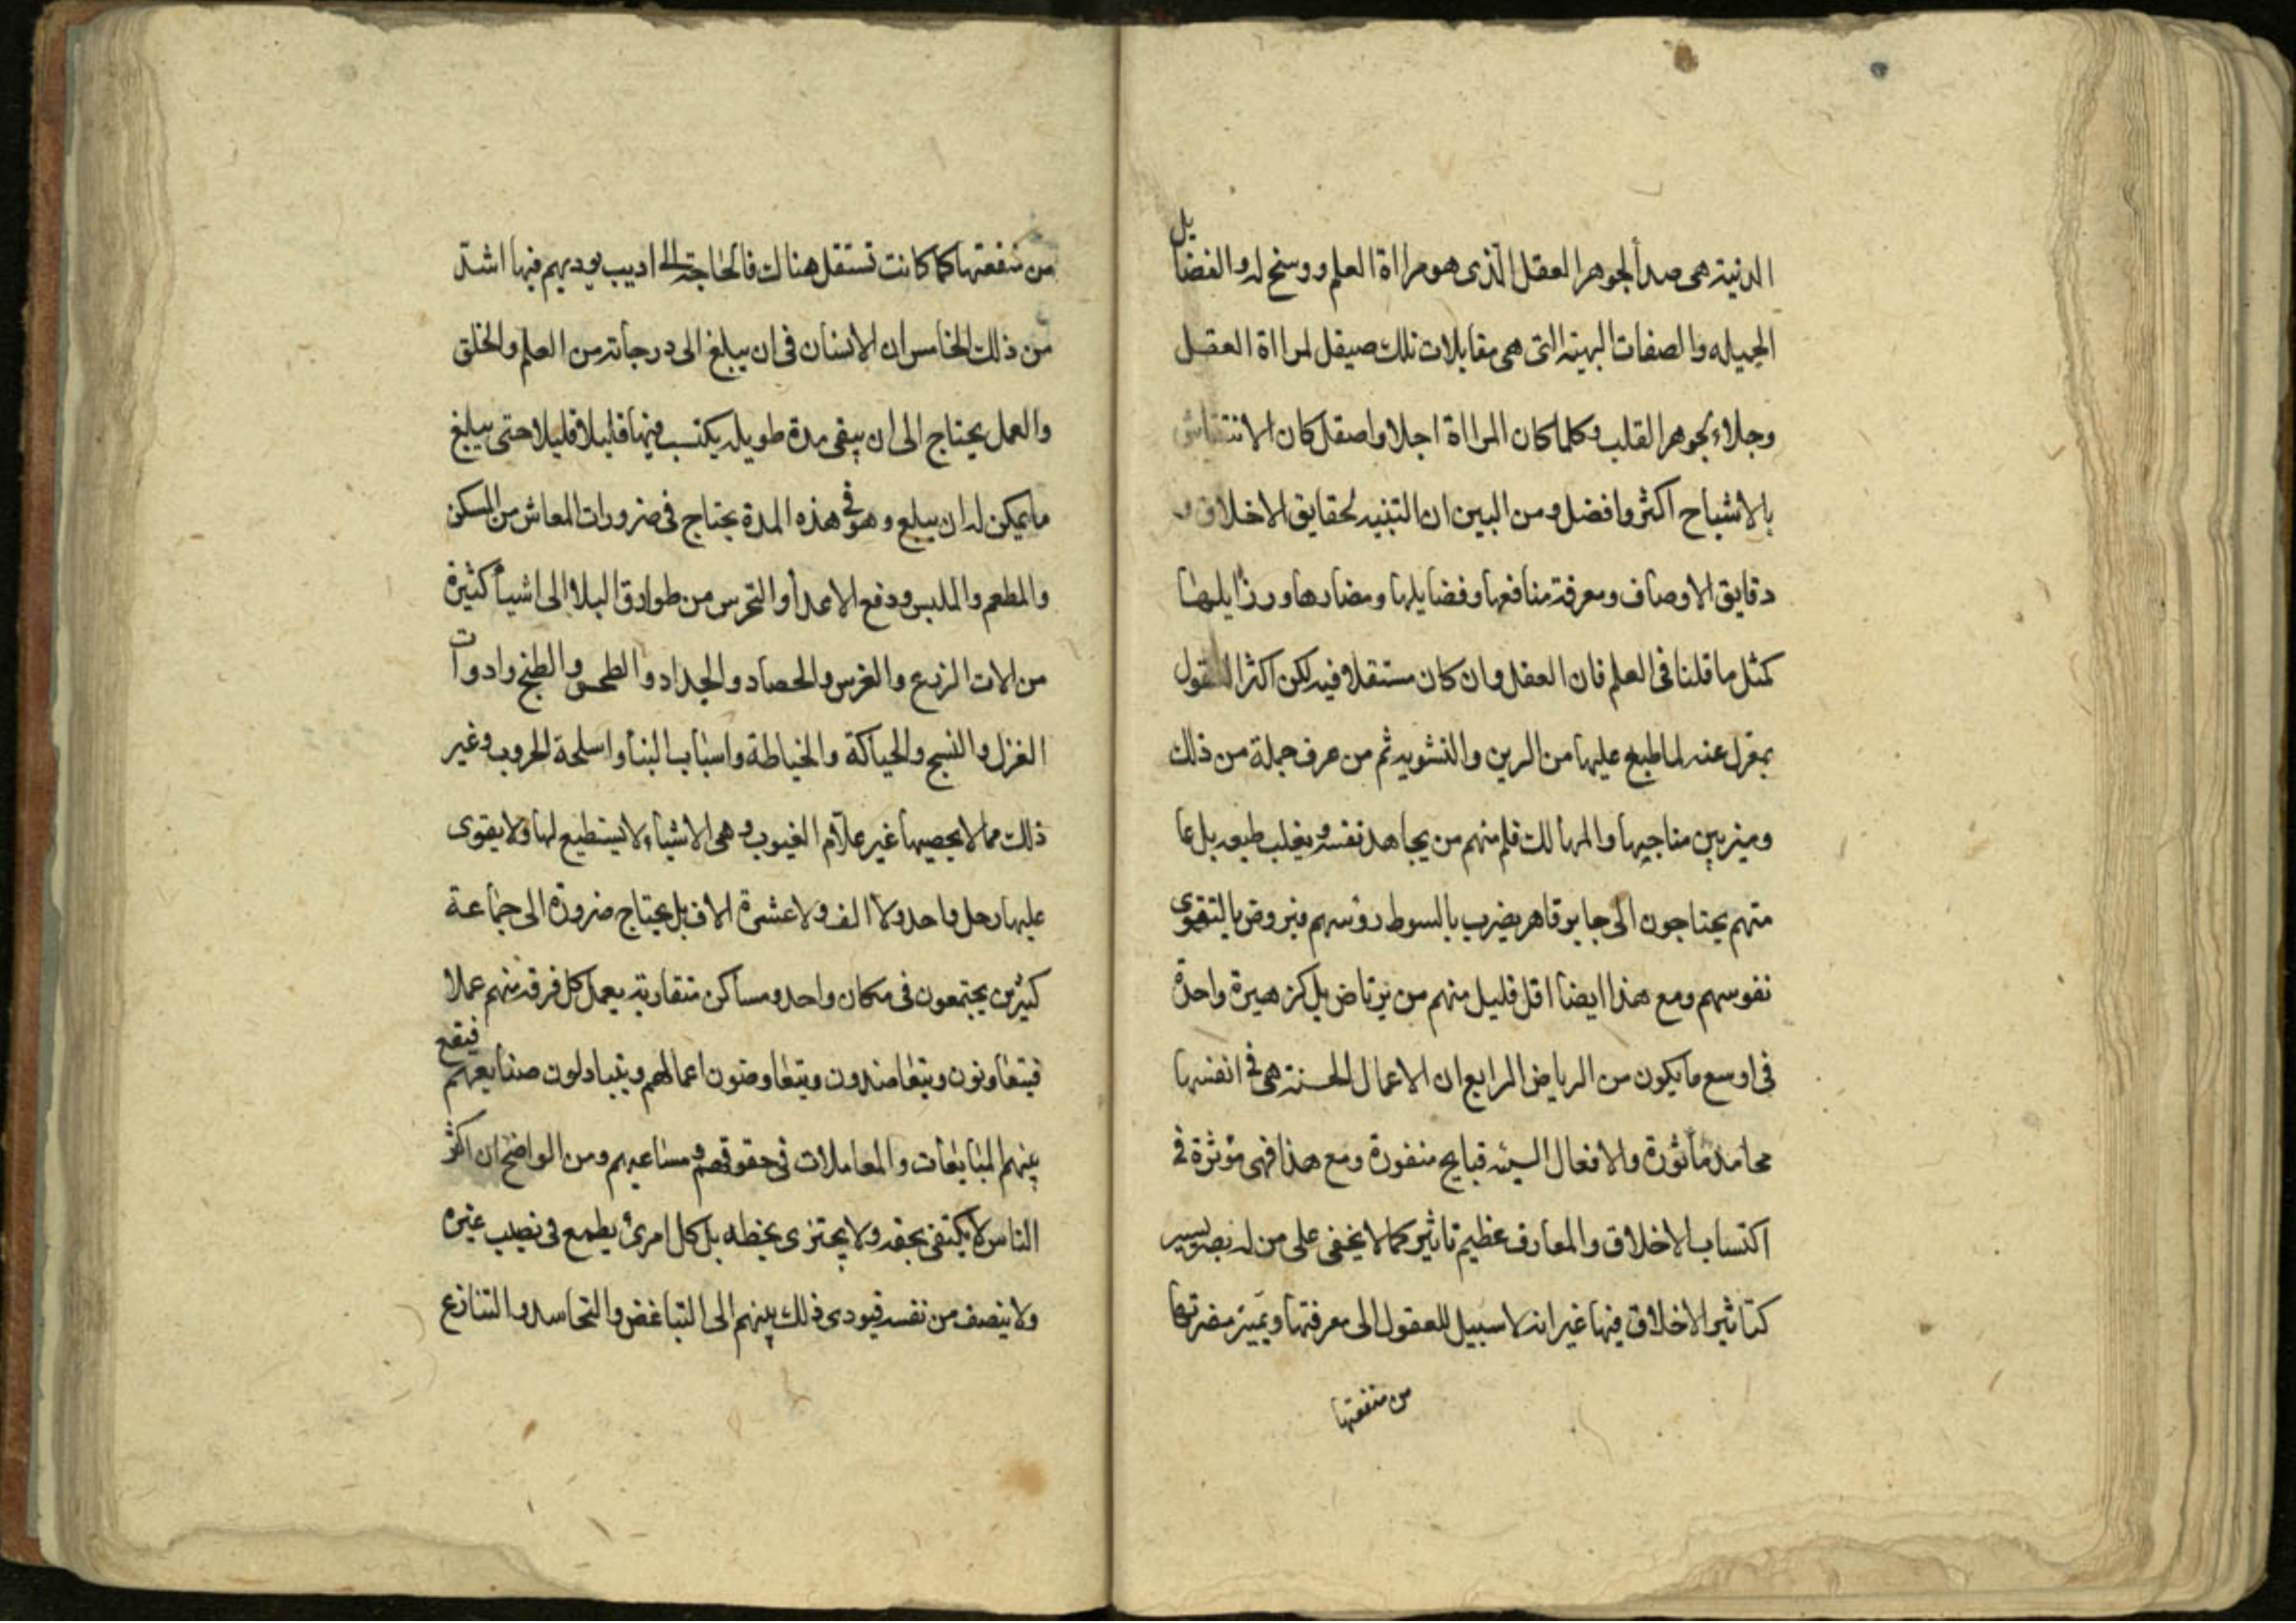 الدنية هى صدأ لجوهر العقل الذى هو مرااة العلم ووسخ له والفضايل
الجميله والصفات البهية التى هى مقابلات تلك صيقل لمرااة العقل
وجلاء لجوهر القلب وكلما كان المرااة اجلا واصقل كان الانتقاش
بالاشباح اكثر وافضل ومن البين ان التنبيه لحقايق الاخلاق و
دقايق الاوصاف ومعرفة منافعها وفضايلها ومضارها ورزايلها
كمثل ما قلنا فى العلم فان العقل وان كان مستقلا فيه لكن اكثر العقول
بمعزل عنه لما طبع عليها من الرين والتشويه ثم من عرف جملة من ذلك
وميز بين مناجيها والمهالك قلم منهم من يجاهد نفسه ويغلب طبعه بل عا
متهم يحتاجون الى جابر قاهر يضرب بالسوط رؤسهم فيروض بالتقوى
نفوسهم ومع هذا ايضا اقل قليل منهم من يرتاض بل كز هيرة واحدة
فى اوسع ما يكون من الرياض الرابع ان الاعمال الحسنة هى فى انفسها
محامد مأثورة والافعال السيئه قبايح منفورة ومع هذا فهى مؤثرة فى
اكتساب الاخلاق والمعارف عظيم تاثير كما لا يخفى على من له بصر يسير
كتاثير الاخلاق فيها غير انه لا سبيل للعقول الى معرفتها وتمييز مضرتها
من منفعتها
من منفعتها كما كانت تستقل هناك فالحاجة الى اديب يوديهم فيها اشد
من ذلك الخامس ان الانسان فى ان يبلغ الى درجاته من العلم والخلق
والعمل يحتاج الى ان يبقى مدة طويله يكتسب فيها قليلا قليلا حتى يبلغ
ما يمكن له ان يبلع وهو فى هذه المدة يحتاج فى ضرورات المعاش من المسكن
والمطعم والملبس ودفع الاعدأ والتحرس من طوارق البلا الى اشيأ كثيرة
من الات الزرع والغرس والحصاد والجداد والطحن والطبخ وادوات
الغزل والنسج والحياكة والخياطة واسباب البنا واسلحة الحروب وغير
ذلك مما لا يحصيها غير علام الغيوب وهى الاشياء لا يستطيع لها ولا يقوى
عليها رجل واحد ولا الف ولا عشرة الاف بل يحتاج ضرورة الى جماعة
كثيرين يجتمعون فى مكان واحد ومساكن متقاربة يعمل كل فرقة منهم عملا
فيتعاونون ويتعاضدون ويتعاوضون اعمالهم ويتبادلون صنايعهم فيقع
بينهم المبايعات والمعاملات فى حقوقهم ومساعيهم ومن الواضح ان اكثر
الناس لا يكتفى بحقه ولا يجتزى بحظه بل كل امرئ يطمع فى نصيب غيره
ولا ينصف من نفسه فيودى ذلك بينهم الى التباغض والتحاسد والتنازع